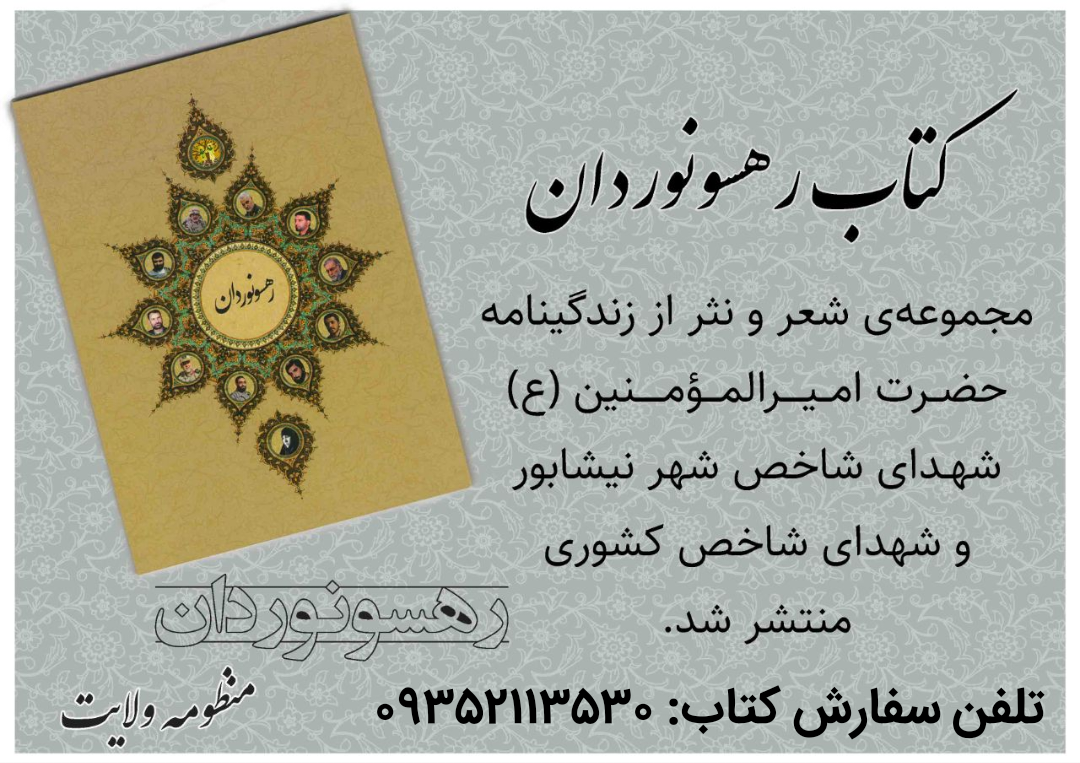 کتاب رهسونوردان
مجموعه‌ی شعر و نثر از زندگینامه
حضرت امیرالمؤمنین (ع)
شهدای شاخص شهر نیشابور
و شهدای شاخص کشوری
منتشر شد.
تلفن سفارش کتاب: ۰۹۳۵۲۱۱۳۵۳۰
رهسونوردان
رهسونوردان
منظومه ولایت